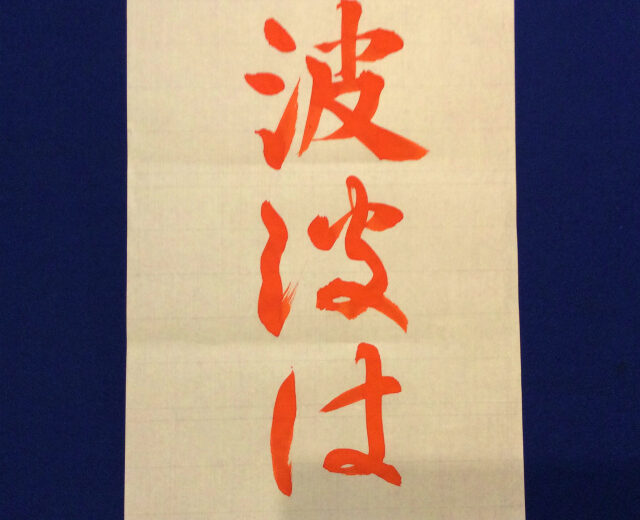 波波は